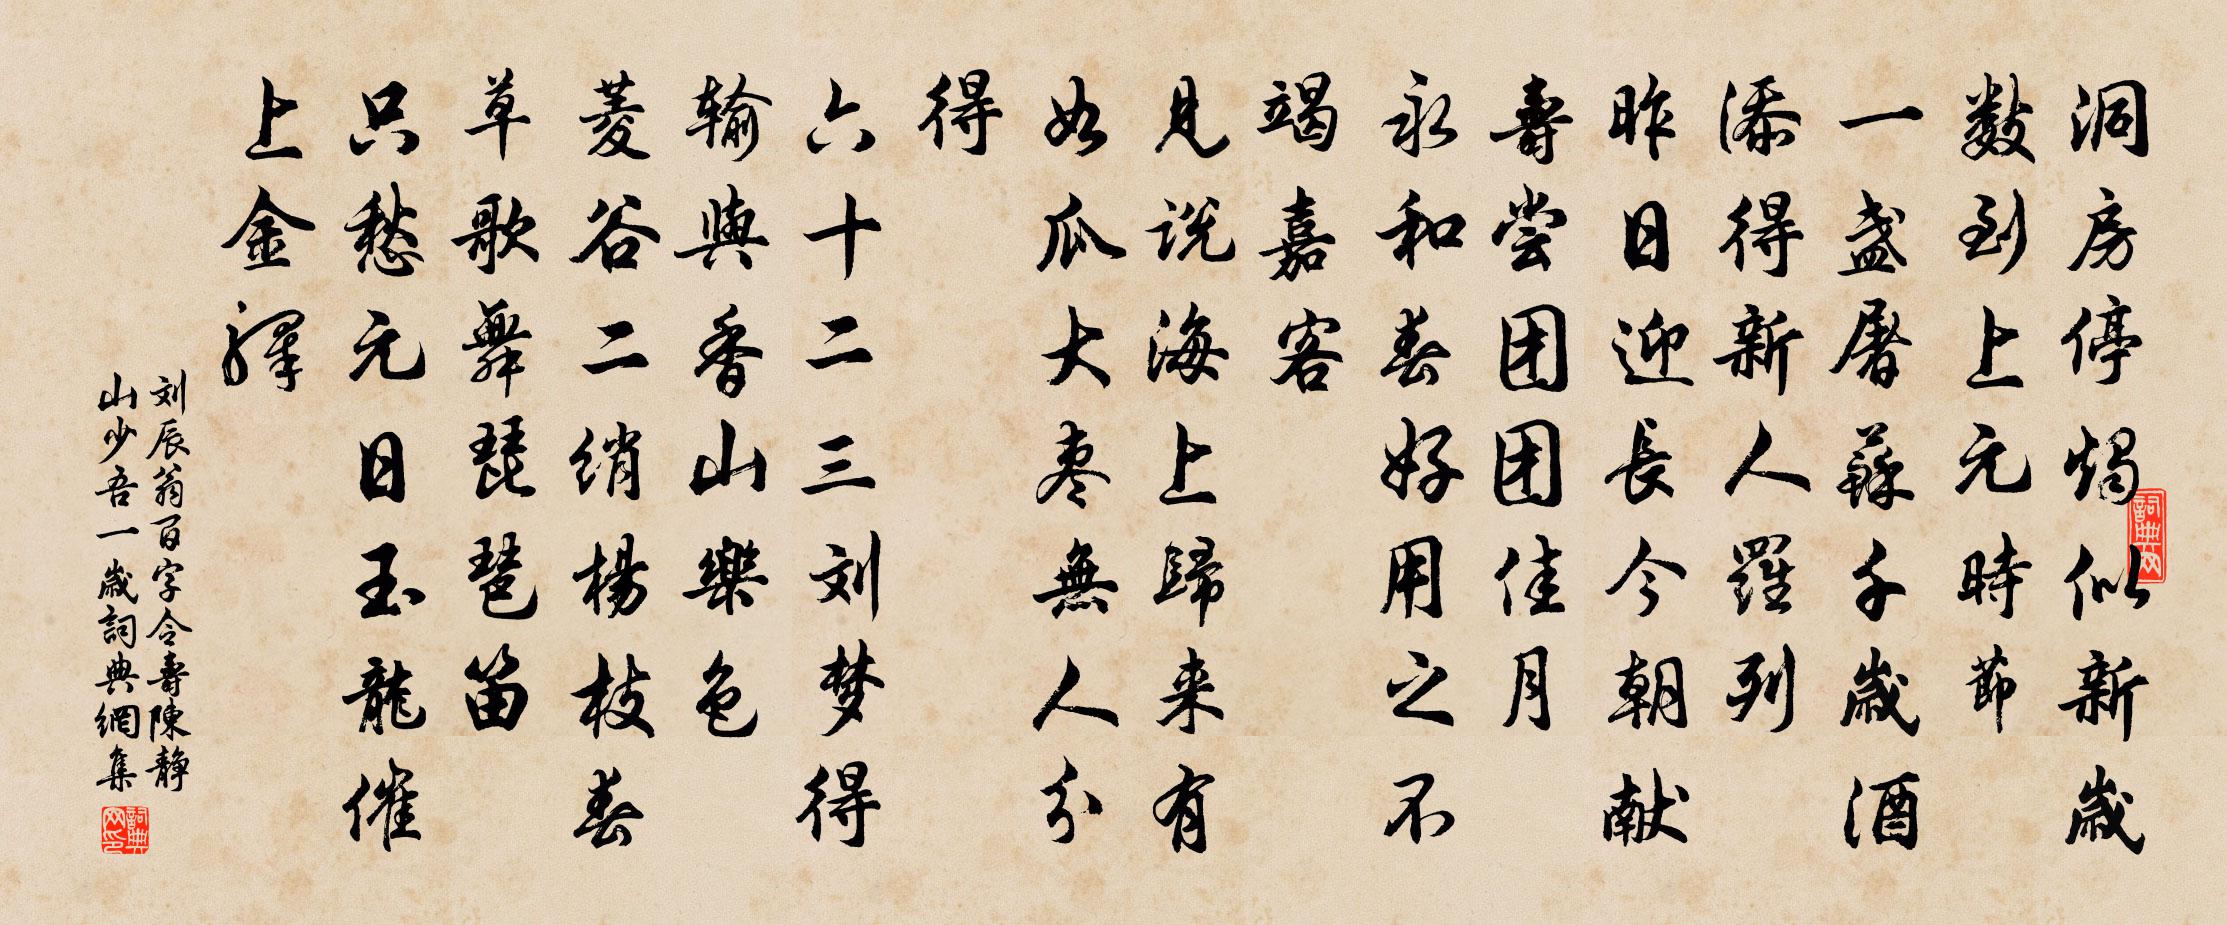 洞房停燭似新歲
數到上元時節
一盞屠蘇千歲酒
添得新人羅列
昨日迎長今朝献
壽尝团团佳月
永和春好用之不
竭嘉客
見说海上歸来有
如瓜大枣無人分
得
六十二三刘梦得
输與香山樂色
菱谷二绡楊枝春
草歌舞琵琶笛
只愁元日玉龍催
上金驛
刘辰翁百字令壽陳静
山少吾一歲詞典網集
詞典网
詞典网印